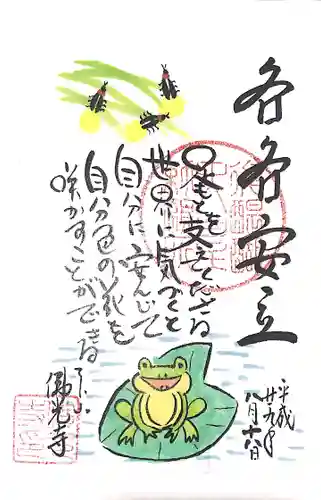 各各安立
足もとを支えて下さる
世界に気づくと
自分に安んじて
自分色の花を
咲かすことができる
佛光寺
平成
廿九年
八月十八日